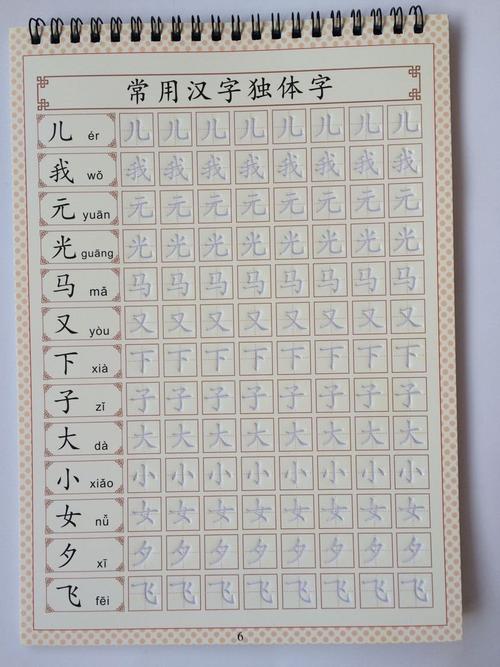 常用汉字独体字
儿 ér 儿 儿 儿 儿 儿 儿 儿 儿
我 wǒ 我 我 我 我 我 我 我 我
元 yuán 元 元 元 元 元 元 元 元
光 guāng 光 光 光 光 光 光 光 光
马 mǎ 马 马 马 马 马 马 马 马
又 yòu 又 又 又 又 又 又 又 又
下 xià 下 下 下 下 下 下 下 下
子 zǐ 子 子 子 子 子 子 子 子
大 dà 大 大 大 大 大 大 大 大
小 xiǎo 小 小 小 小 小 小 小 小
女 nǚ 女 女 女 女 女 女 女 女
夕 xī 夕 夕 夕 夕 夕 夕 夕 夕
飞 fēi 飞 飞 飞 飞 飞 飞 飞 飞
6